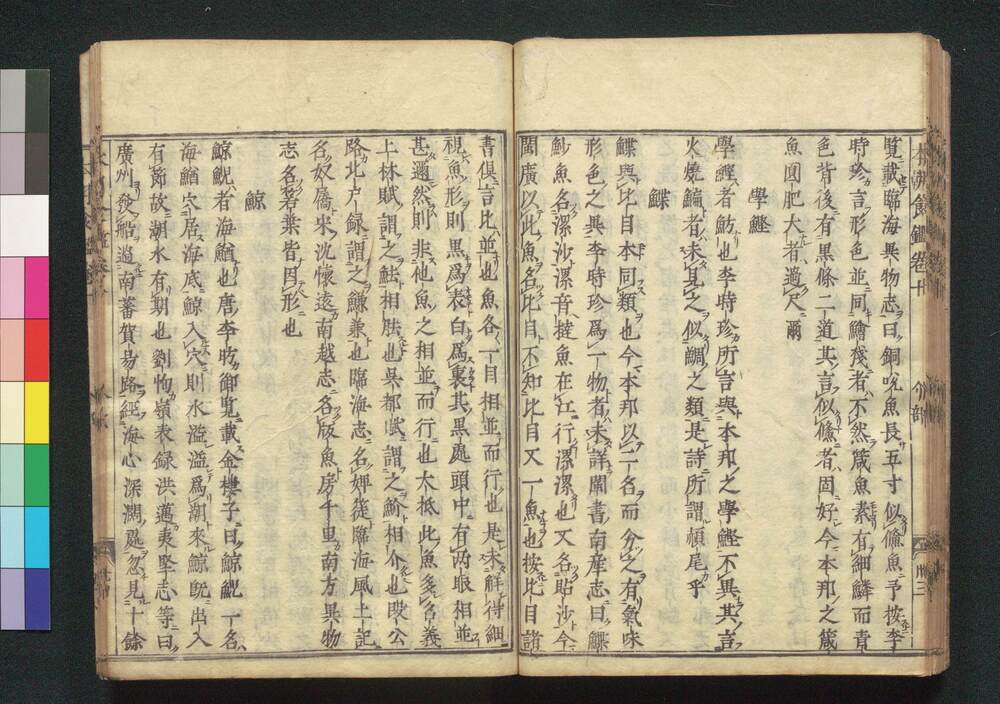 本朝食鑑卷十 介部 四十三
覽載臨海異物志曰銅吮魚長五寸似鯈魚予按李
時珍言形色並同鱠殘者不然箴魚素有細鱗而青
色背後有黑條二道其言似鯈者固好今本邦之箴
魚圓肥大者過尺爾
學鰹
學鰹者魴也李時珍所言與本邦之學鰹不異其言
火燒鯿者未見之似鯛之類是詩所謂頳尾乎
鰈
鰈與比目本同類也今本邦以二名而分之有氣味
形色之異李時珍爲一物者未詳閩書南産志曰鰈
魦魚名漯沙漯音撻魚在江行漯漯也又名貼沙今
閩廣以此魚名比目不知比目又一魚也按比目諸
書俱言比並也魚各一目相並而行也是未解得細
視魚形則黑爲表白爲裏其黑處頭中有兩眼相並
甚邇然則非他魚之相並而行也大抵此魚多名義
上林賦謂之魼相胠也吳都賦謂之魪相介也段公
路北户録謂之鰜兼也臨海志名婢簁臨海風土記
名奴屩宋沈懷遠南越志名版魚房千里南方異物
志名箬葉皆因形也
鯨
鯨鯢者海鰌也唐李昉御覽載金樓子曰鯨鯢一名
海鰌穴居海底鯨入穴則水溢溢爲潮來鯨既出入
有節故潮水有期也劉恂嶺表録洪邁夷堅志等曰
廣州發船過南蕃賀易路經海心深濶處忽見十餘